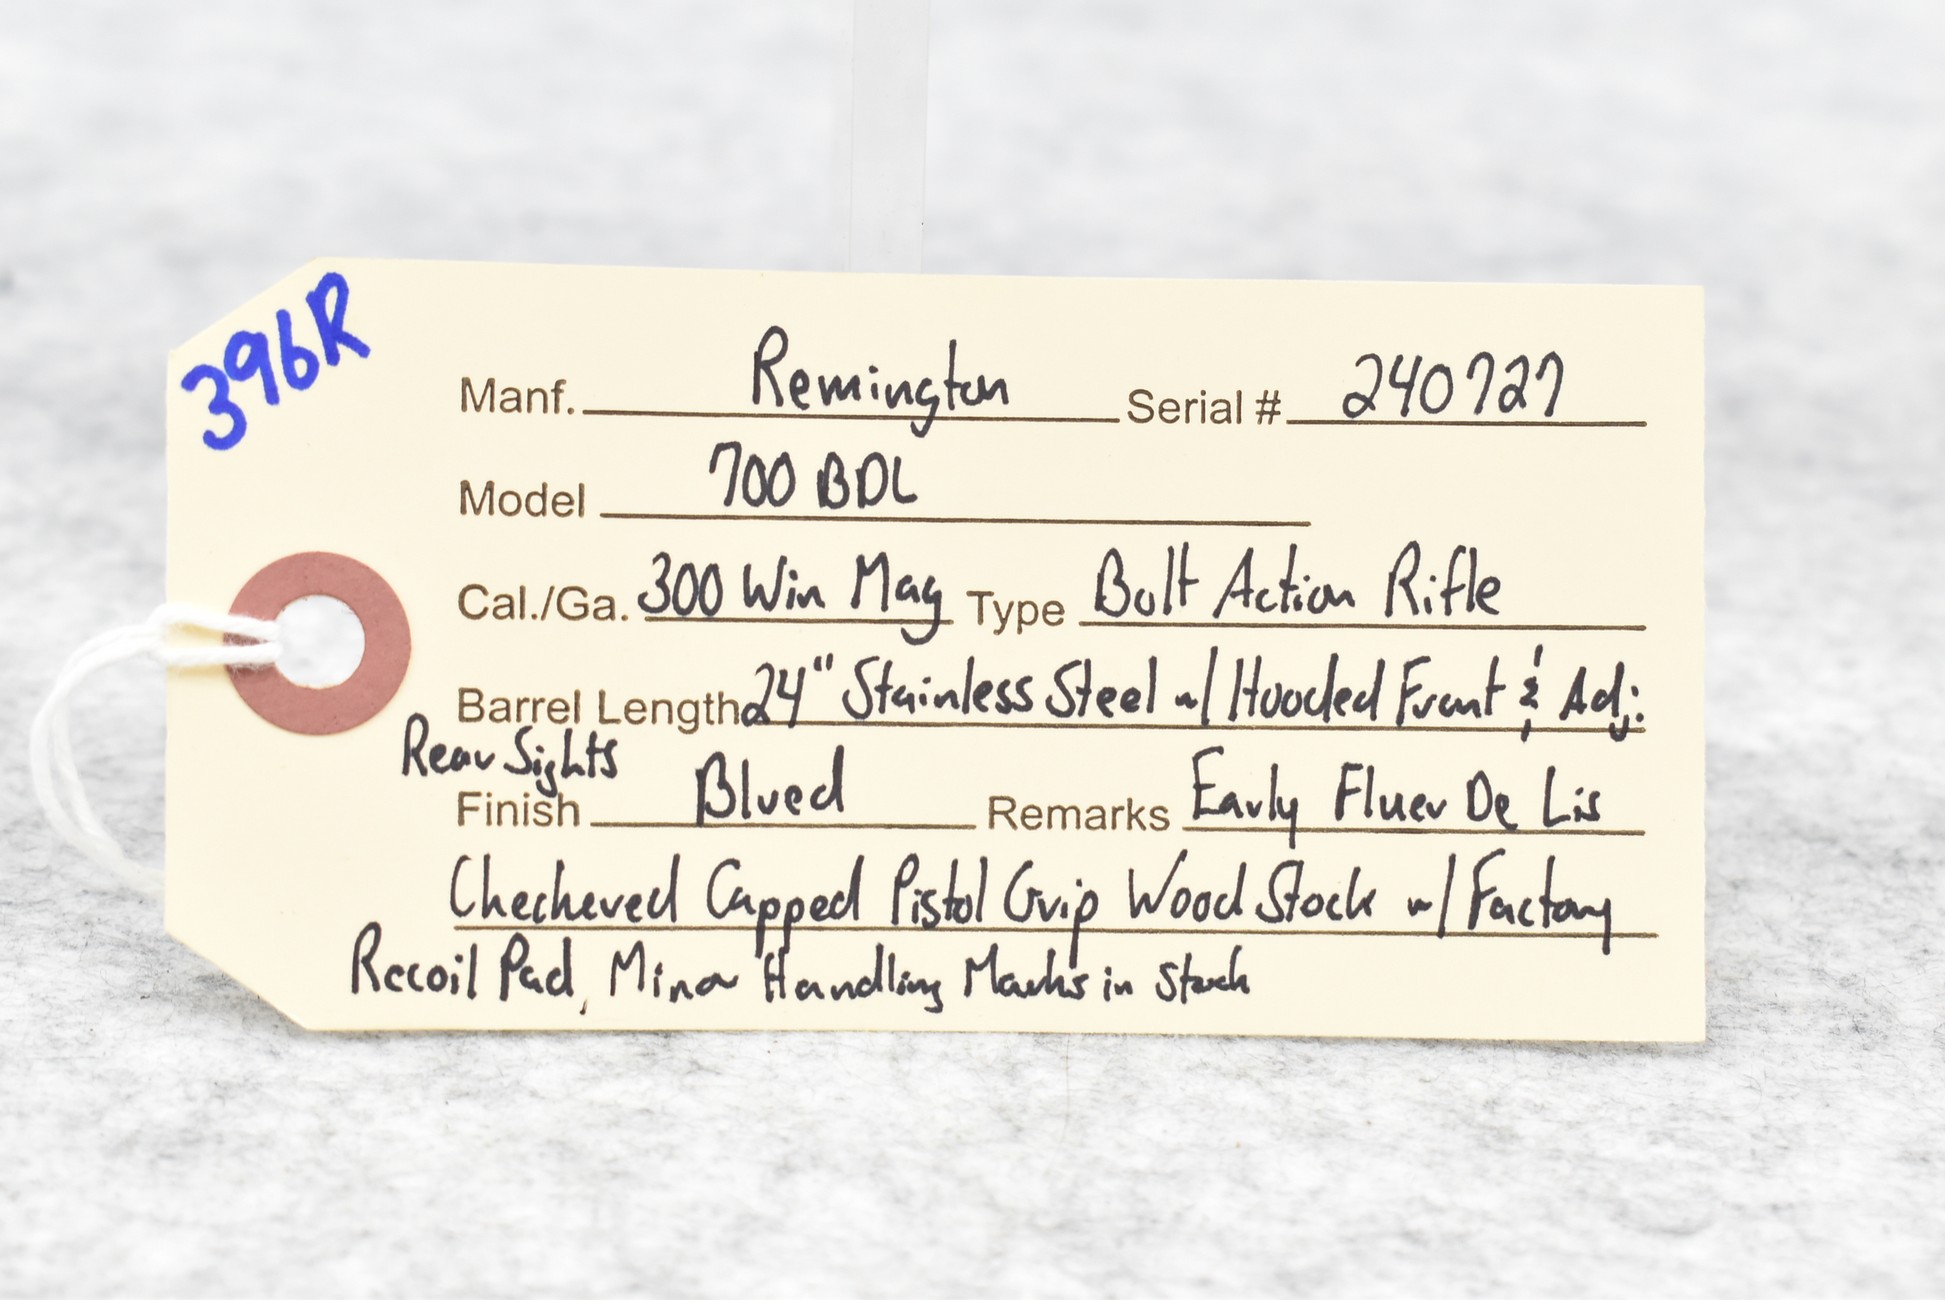 396R
Manf. Remington Serial # 240727
Model 700 BDL
Cal./Ga. 300 Win Mag Type Bolt Action Rifle
Barrel Length 24" Stainless Steel w/ Hooded Front & Adj.
Rear Sights
Finish Blued Remarks Early Fluer De Lis
Checkered Capped Pistol Grip Wood Stock w/ Factory
Recoil Pad, Minor Handling Marks in Stock